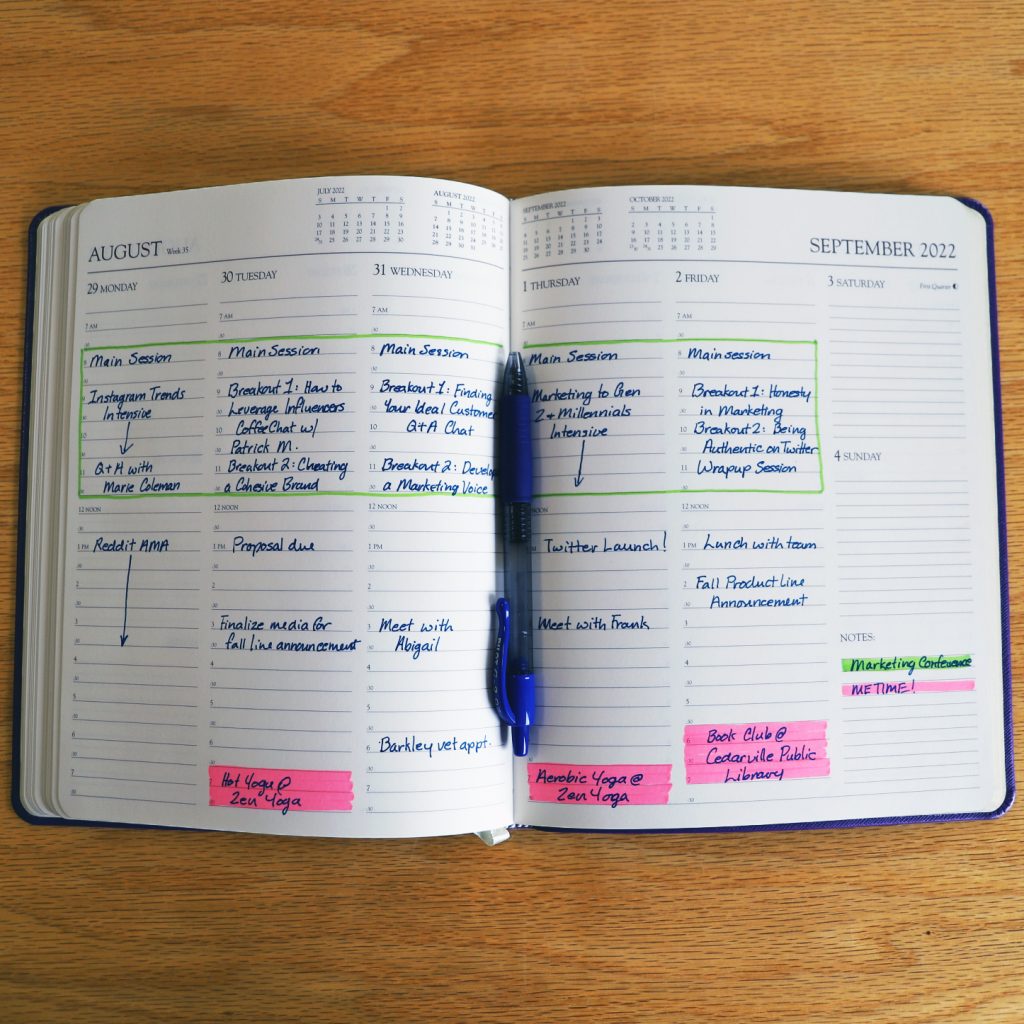 JULY 2022
S M T W T F S
1 2
3 4 5 6 7 8 9
10 11 12 13 14 15 16
17 18 19 20 21 22 23
25 26 27 28 29 30
AUGUST 2022
S M T W T F S
1 2 3 4 5 6
7 8 9 10 11 12 13
14 15 16 17 18 19 20
21 22 23 24 25 26 27
28 29 30 31
AUGUST Week 35
29 MONDAY
7 AM
8 Main Session
9 Instagram Trends
Intensive
10
11 Q+A with
Marie Coleman
12 NOON
1 PM Reddit AMA
2
3
4
5
6
7
30 TUESDAY
7 AM
8 Main Session
9 Breakout 1: How to
Leverage Influencers
10 Coffee Chat w/
Patrick M.
11 Breakout 2: Cheating
a Cohesive Brand
12 NOON
1 PM Proposal due
2
3 Finalize media for
fall line announcement
4
5
6
7 Hot Yoga @
Zen Yoga
31 WEDNESDAY
7 AM
8 Main Session
9 Breakout 1: Finding
Your Ideal Customer
10 Q+A Chat
11 Breakout 2: Develop
a Marketing Voice
12 NOON
1 PM
2
3 Meet with
Abigail
4
5
6 Barkley vet appt.
7
SEPTEMBER 2022
S M T W T F S
1 2 3
4 5 6 7 8 9 10
11 12 13 14 15 16 17
18 19 20 21 22 23 24
25 26 27 28 29 30
OCTOBER 2022
S M T W T F S
1
2 3 4 5 6 7 8
9 10 11 12 13 14 15
16 17 18 19 20 21 22
25 26 27 28 29
SEPTEMBER 2022
1 THURSDAY
7 AM
Main Session
Marketing to Gen
Z + Millennials
Intensive
NOON
Twitter Launch!
Meet with Frank
Aerobic Yoga @
Zen Yoga
2 FRIDAY
7 AM
8 Main session
9 Breakout 1: Honesty
in Marketing
10 Breakout 2: Being
Authentic on Twitter
11 Wrapup Session
12 NOON
1 PM Lunch with team
2 Fall Product Line
Announcement
3
4
5
6 Book Club @
Cedarville Public
7 Library
3 SATURDAY
First Quarter
4 SUNDAY
NOTES:
Marketing Conference
ME TIME!
PILOT G-2